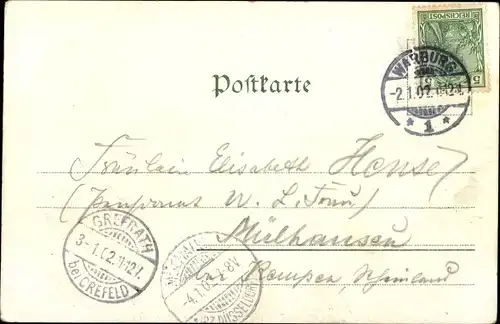 5 REICHSPOST 5
WARBURG
-2.1.02.11-12V.
* 1 *
Postkarte
Fräulein Elisabeth Hense
(Pensionat
Mülhausen
bei Kempen, Rheinland
GREFRATH
3-1.02.11-12V.
bei CREFELD
4.1.02. 8V
BZ. DÜSSELDORF